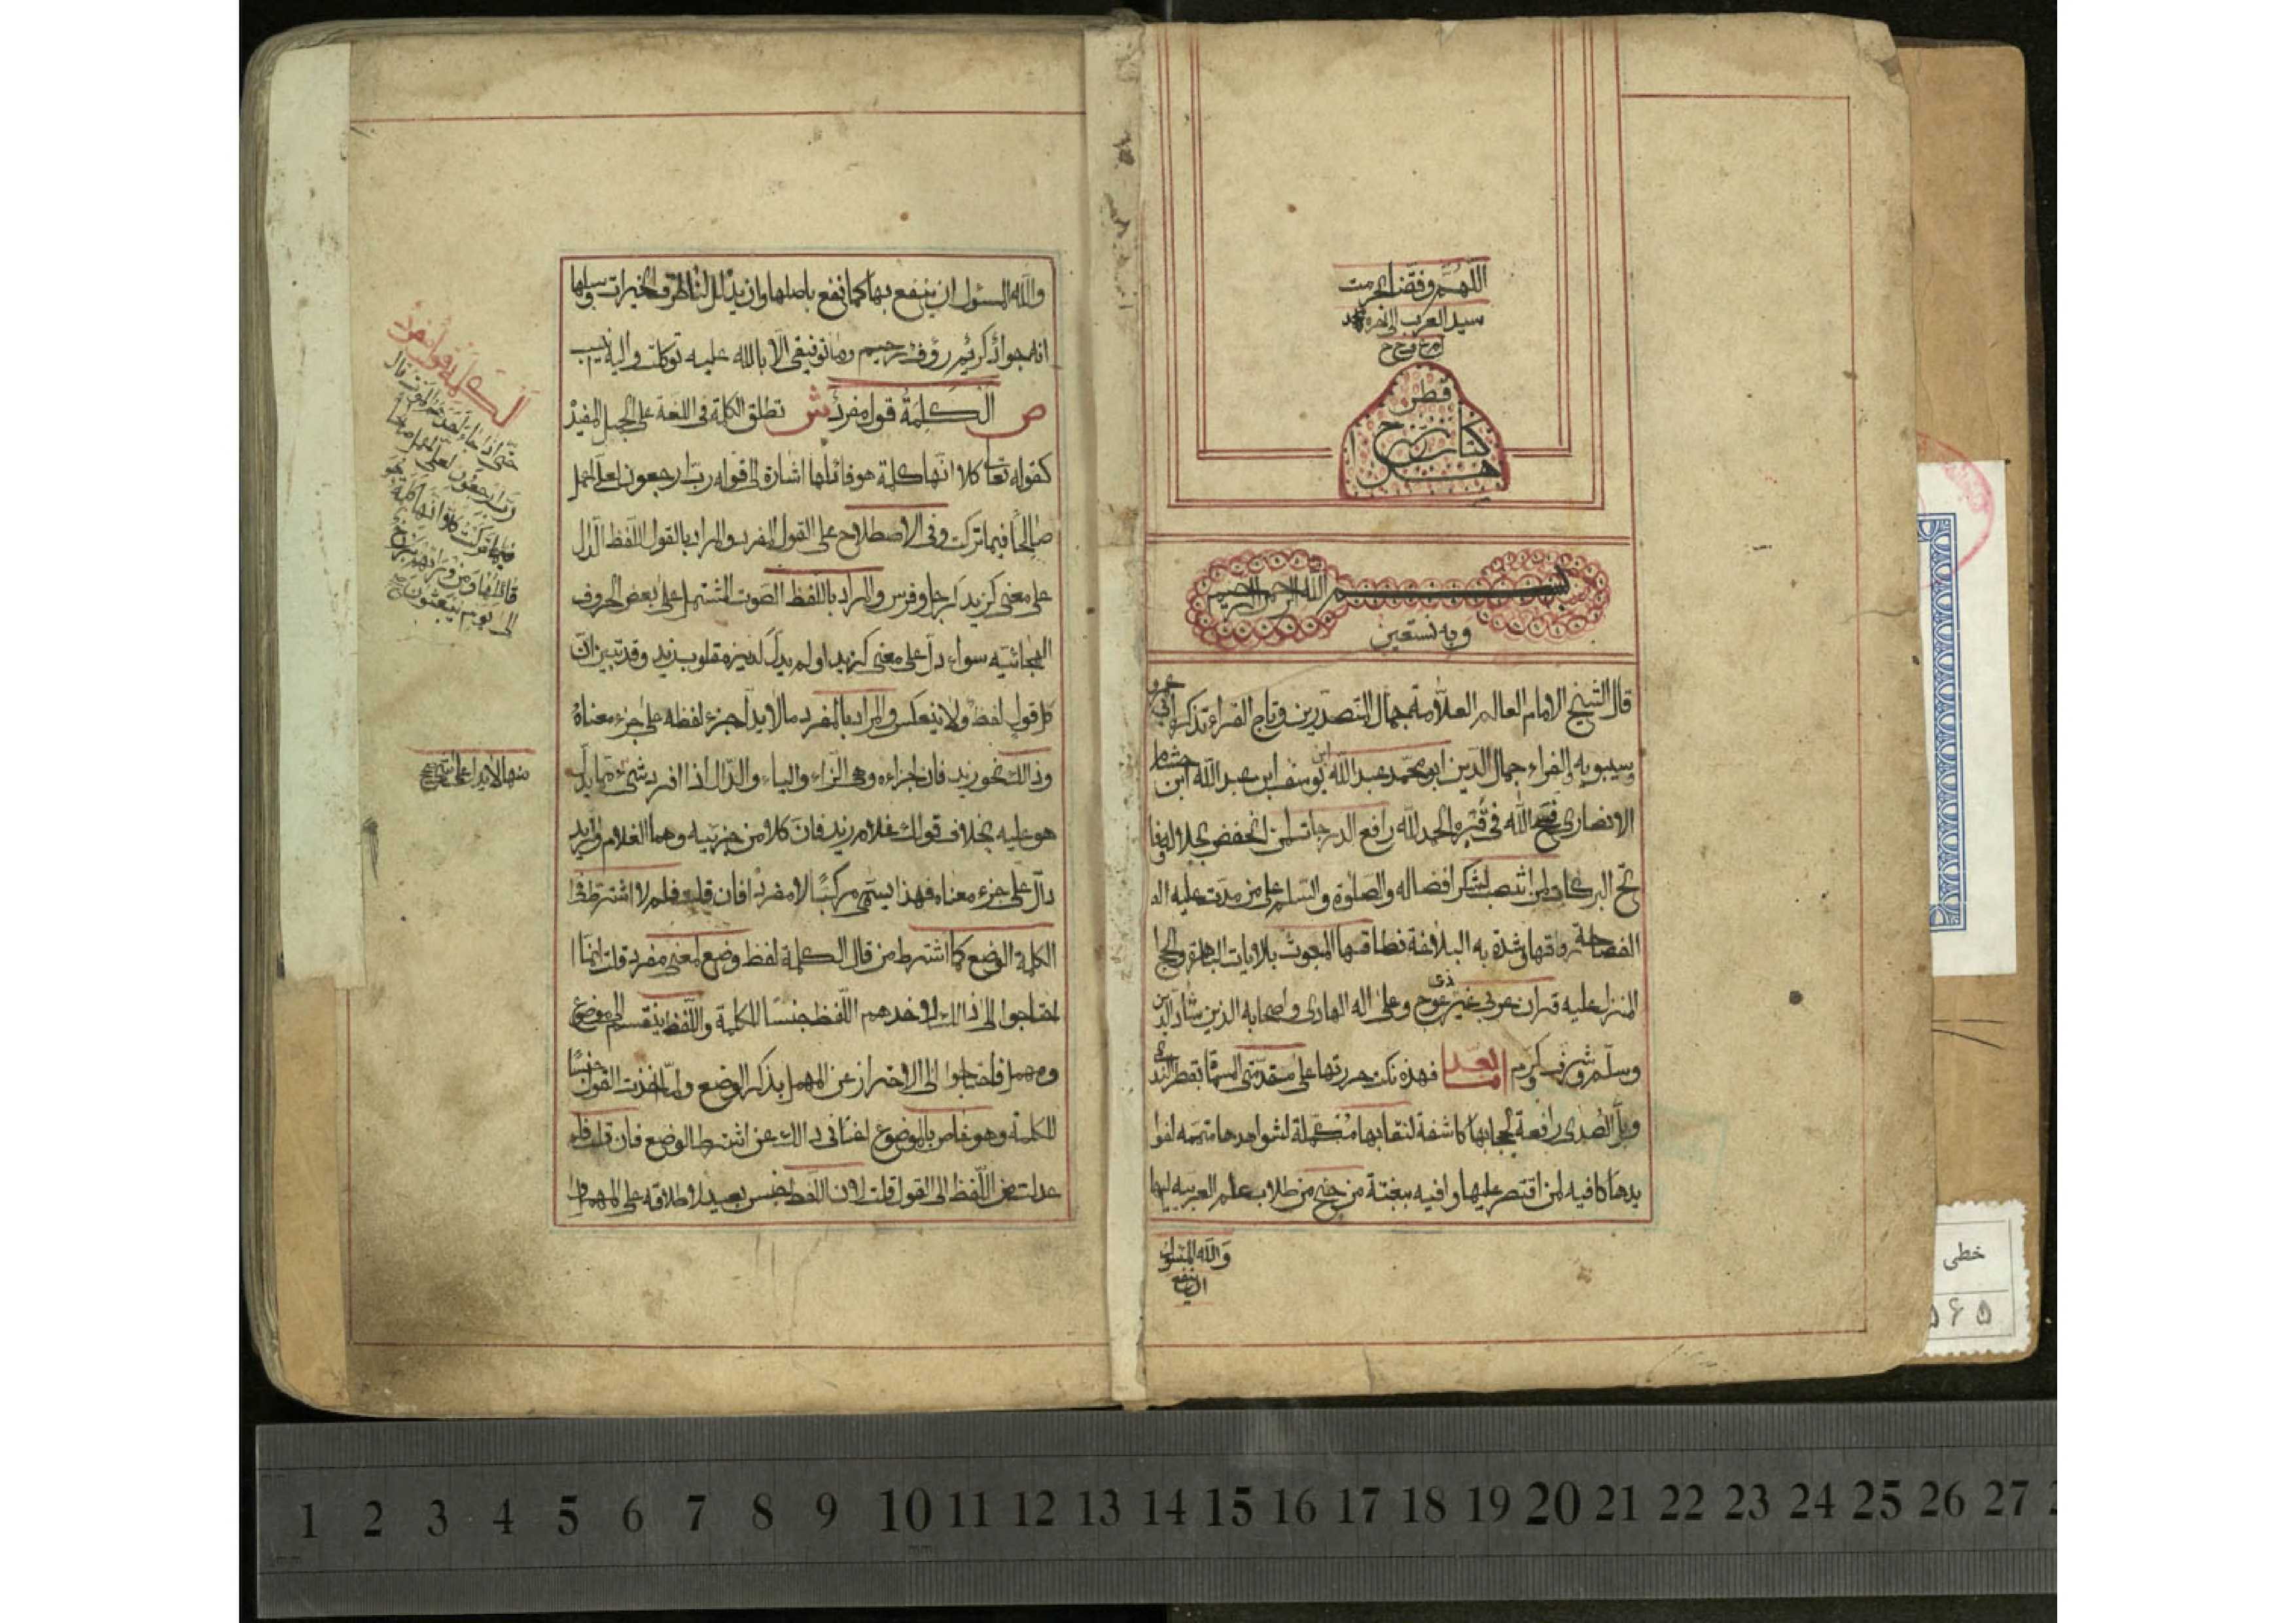 اللهم وفقنا بحرمت
سيد العرب
قطر
كتاب شرح
بسم الله الرحمن الرحيم
وبه نستعين
قال الشيخ الامام العالم العلامة جمال المتصدرين وتاج القراء تذكرة ابى عمرو
وسيبويه والفراء جمال الدين ابو محمد عبد الله ابن يوسف ابن عبد الله ابن هشام
الانصارى فسح الله فى قبره الحمد لله رافع الدرجات لمن انخفض لجلاله وفا
تح البركات لمن انتصب لشكر افضاله والصلوة والسلم على من مدت عليه ال
الفصاحة رواقها وشدة به البلاغة نطاقها المبعوث بالايات الباهرة والحج
المنزل عليه قران عربى غير ذى عوج وعلى اله الهادى واصحابه الذين شاد الدين
وسلم وشرف وكرم اما بعد فهذه نكت حررتها على مقدمتى المسماة بقطر الندى
وبل الصدى رافعة لحجابها كاشفة لنقابها مكملة لشواهدها متممه لفوا
يدها كافيه لمن اقتصر عليها وافيه ببغية من جنح من طلاب علم العربيه اليها
والله المسئول
ان ينفع
والله المسئول ان ينفع بها كما نفع باصلها وان يذلل لنا طرق الخيرات وسبلها
انه جواد كريم رؤف رحيم وما توفيقى الا بالله عليه توكلت واليه انيب
ص الكلمة قول مفرد ش تطلق الكلمة فى اللغة على الجمل المفيد
كقوله تعا كلا انها كلمة هو قائلها اشارة الى قوله رب ارجعون لعلى اعمل
صالحا فيما تركت وفى الاصطلاح على القول المفرد والمراد بالقول اللفظ الدال
على معنى كزيد كرجل وفرس والمراد باللفظ الصوت المشتمل على بعض الحروف
الهجائيه سواء دل على معنى كزيد او لم يدل كديز مقلوب زيد وقد تبين ان
كل قول لفظ ولا ينعكس والمراد بالمفرد ما لا يدل جزء لفظه على جزء معناه
وذلك نحو زيد فان اجزاءه وهى الزاء والياء والدال اذا افرد شىء مما يدل
هو عليه بخلاف قولك غلام زيد فان كلا من جزئيه وهما الغلام وزيد
دال على جزء معناه فهذا يسمى مركبا لا مفردا فان قلت فلم لا اشترطت فى
الكلمة الوضع كما اشترط من قال الكلمة لفظ وضع لمعنى مفرد قلت انما ا
احتاجوا الى ذالك لاخدهم اللفظ جنسا للكلمة واللفظ ينقسم الى موضوع
ومهمل فاحتاجوا الى الاحتراز عن المهمل بذكر الوضع ولما اخذت القول جنسا
للكلمة وهو خاص بالموضوع اغنانى ذالك عن اشترط الوضع فان قلت فلم
عدلت من اللفظ الى القول قلت لان اللفظ جنس بعيد لاطلاقه على المهمل وا
الكلمة قول مفرد
حتى اذا جاء احدهم الموت قال
رب ارجعون لعلى اعمل صالحا
فيما تركت كلا انها كلمة هو
قائلها ومن ورائهم برزخ
الى يوم يبعثون
خطى